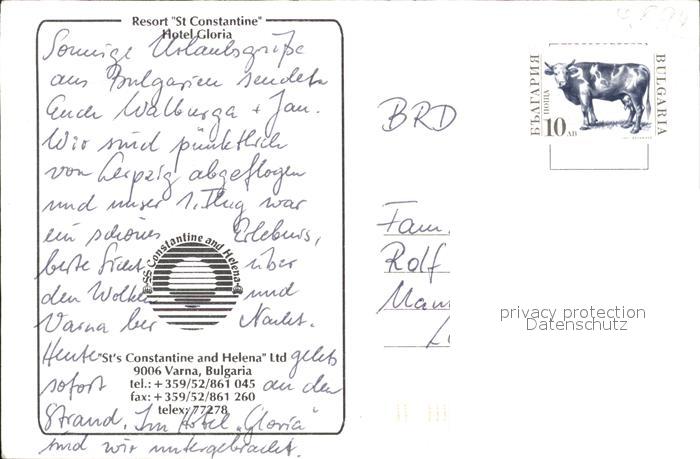 Resort "St Constantine"
Hotel Gloria
Sonnige Urlaubsgrüße
aus Bulgarien sendet
Euch Walburga + Jan.
Wir sind pünktlich
von Leipzig abgeflogen
und unser 1. Flug war
ein schönes Erlebnis,
beste Sicht über
den Wolken und
Varna bei Nacht.
Heute gehts
sofort an den
Strand. Im Hotel „Gloria"
sind wir untergebracht.
SS Constantine and Helena
"St's Constantine and Helena" Ltd
9006 Varna, Bulgaria
tel.: + 359/52/861 045
fax: + 359/52/861 260
telex: 77278
БЪЛГАРИЯ
ПОЩА
10 ЛВ
BULGARIA
BRD
Fam.
Rolf
privacy protection
Datenschutz